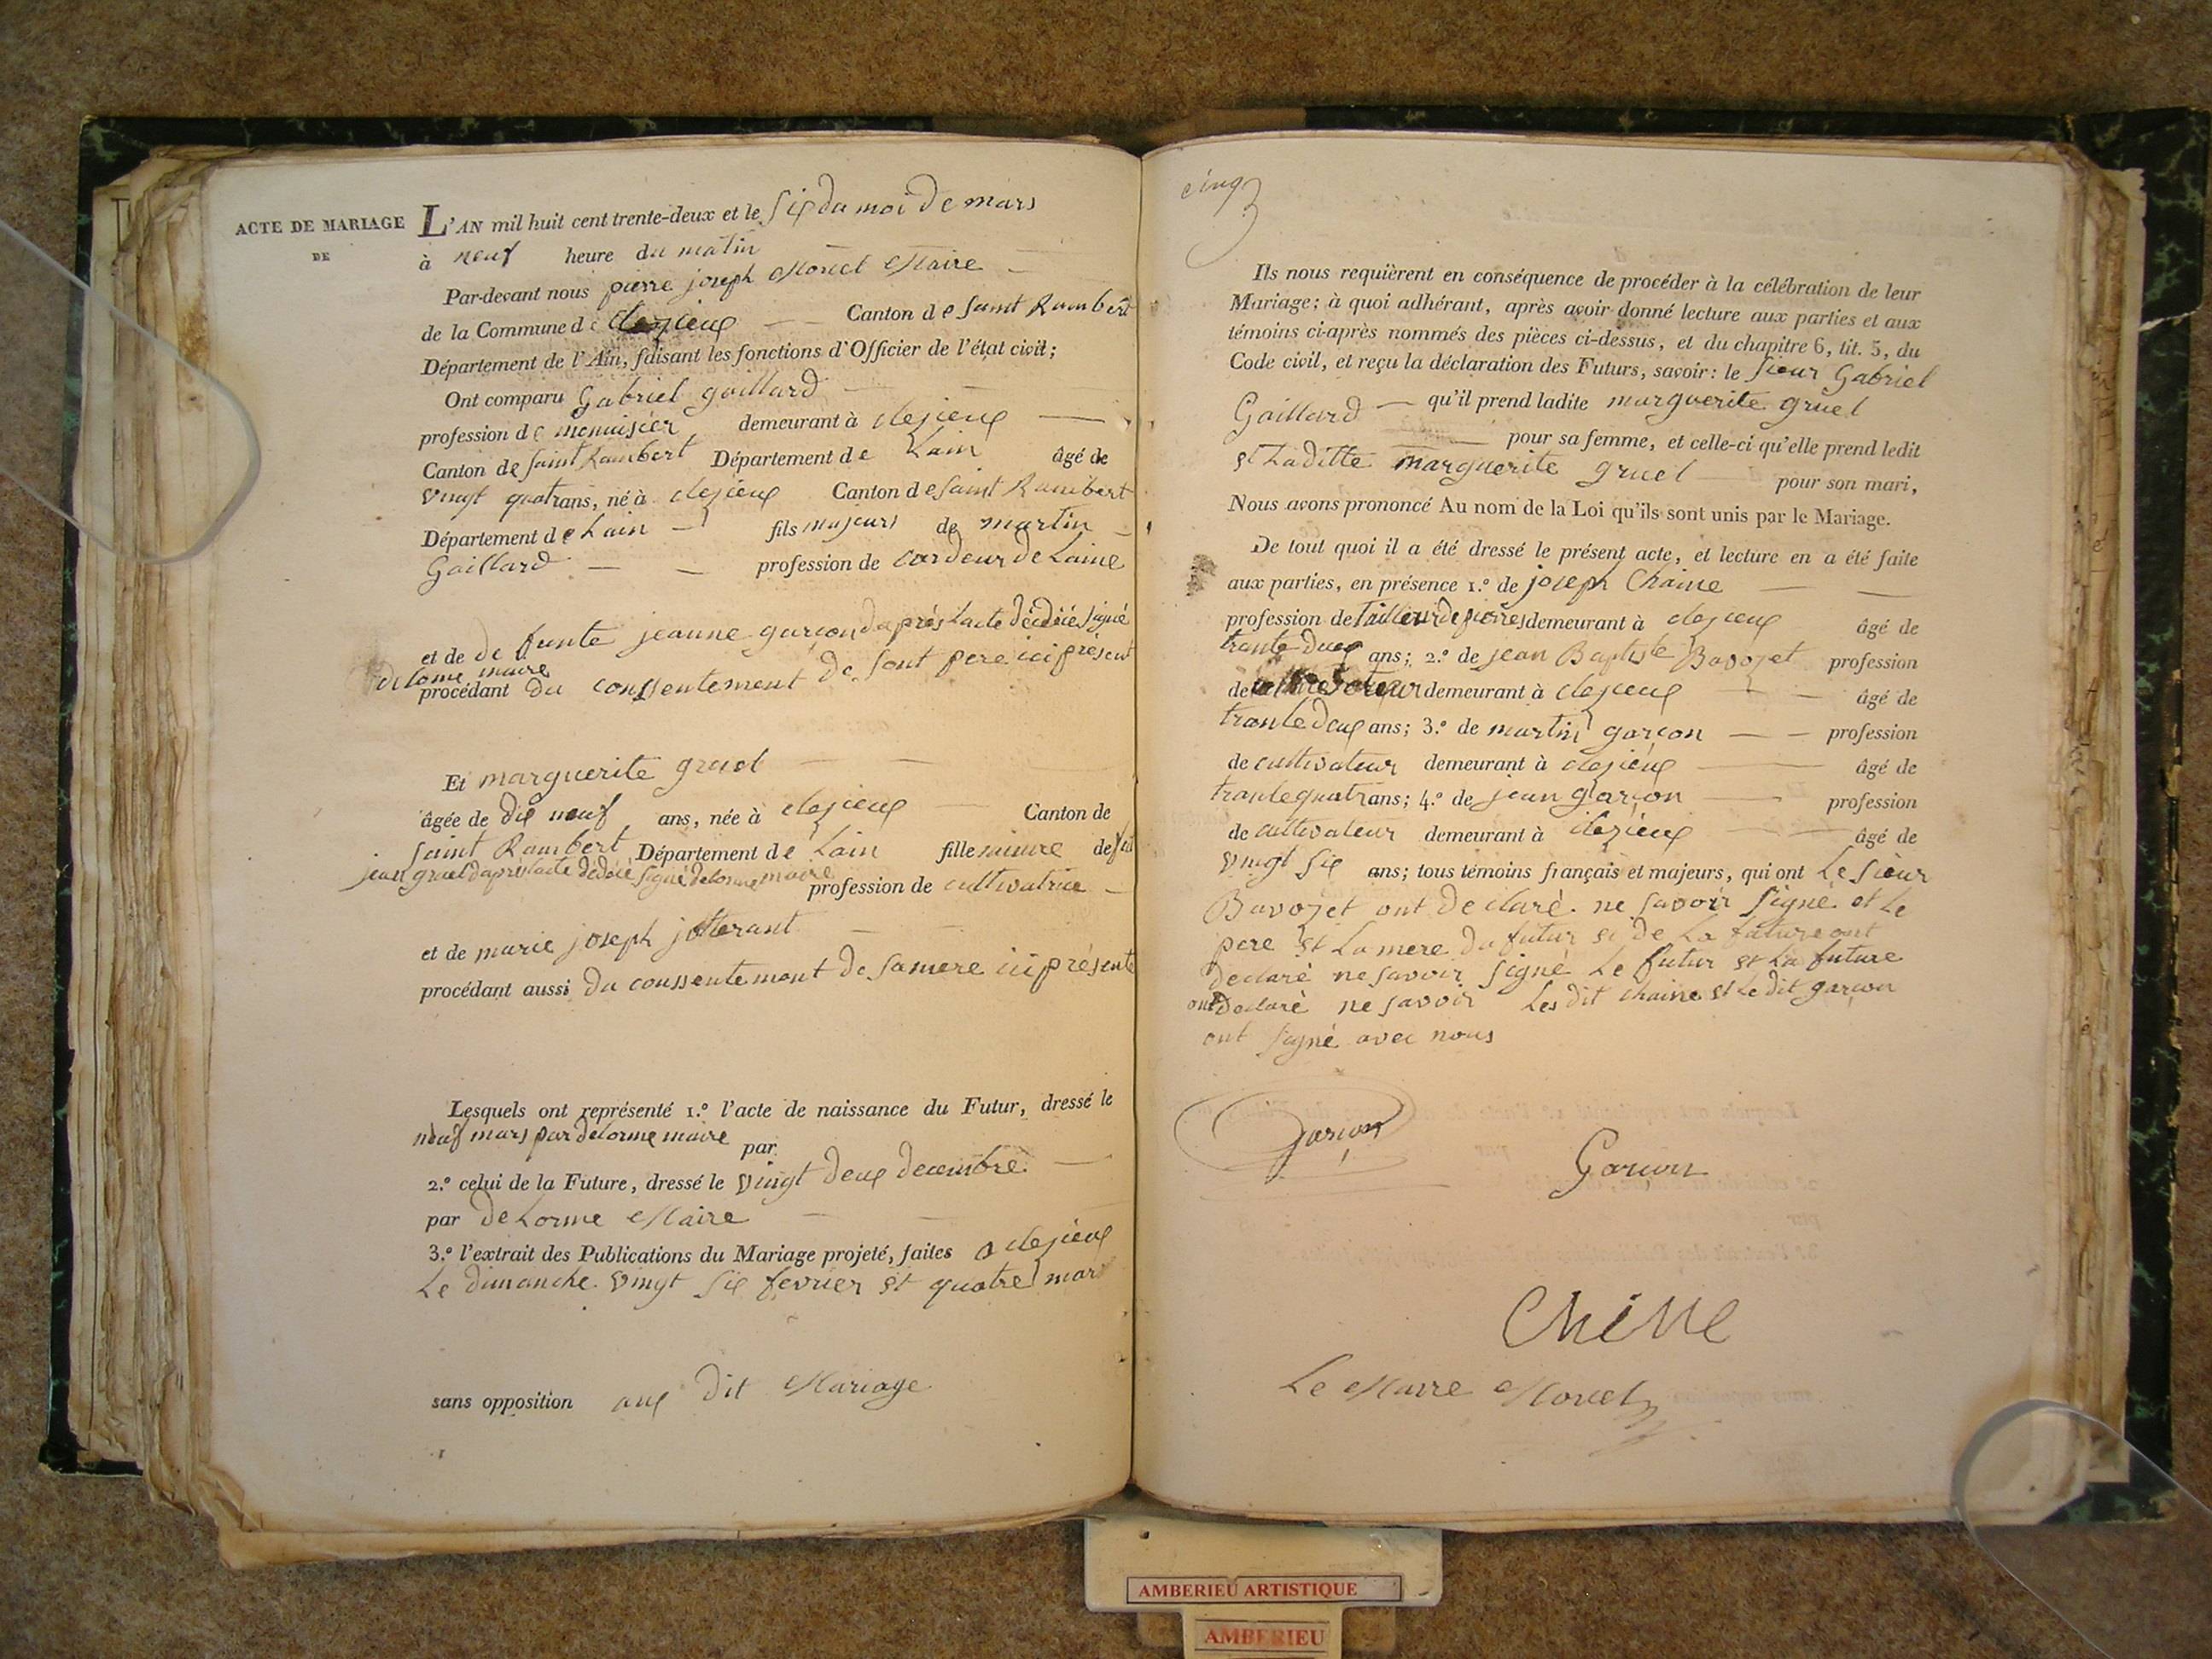 ACTE DE MARIAGE
DE
L'AN mil huit cent trente-deux et le six du moi de mars
à neuf heure du matin
Par-devant nous pierre joseph Morel Maire
de la Commune de clezieux Canton de saint Rambert
Département de l'Ain, faisant les fonctions d'Officier de l'état civil;
Ont comparu Gabriel gaillard
profession de menuisier demeurant à clezieux
Canton de saint Rambert Département de Lain âgé de
vingt quatrans, né à clezieux Canton de saint Rambert
Département de Lain fils majeurs de martin
Gaillard profession de cardeur de Laine
et de de funte jeanne garçon daprés Lacte décécé signé
delorme maire
procédant du conssentement de sont pere ici présent
Et marguerite gruel
âgée de dix neuf ans, née à clezieux Canton de
saint Rambert Département de Lain fille mineure de feu
jean gruel daprés lacte dédécé signé delorme maire
profession de cultivatrice
et de marie joseph jotterant
procédant aussi du conssentement de sa mere ici présente
Lesquels ont représenté 1.º l'acte de naissance du Futur, dressé le
neuf mars par delorme maire par
2.º celui de la Future, dressé le vingt deux decembre
par delorme Maire
3.º l'extrait des Publications du Mariage projeté, faites a clezieux
Le dimanche vingt six fevrier et quatre mars
sans opposition aux dit Mariage
cinq
Ils nous requièrent en conséquence de procéder à la célébration de leur
Mariage; à quoi adhérant, après avoir donné lecture aux parties et aux
témoins ci-après nommés des pièces ci-dessus, et du chapitre 6, tit. 5, du
Code civil, et reçu la déclaration des Futurs, savoir: le sieur Gabriel
Gaillard qu'il prend ladite marguerite gruel
pour sa femme, et celle-ci qu'elle prend ledit
et Laditte marguerite gruel pour son mari,
Nous avons prononcé Au nom de la Loi qu'ils sont unis par le Mariage.
De tout quoi il a été dressé le présent acte, et lecture en a été faite
aux parties, en présence 1.º de joseph Chaine
profession de Tailleur de pierres demeurant à clezieux âgé de
trante deux ans; 2.º de jean Baptiste Bavozet profession
de demeurant à clezieux âgé de
trante deux ans; 3.º de martin garçon profession
de cultivateur demeurant à clezieux âgé de
trante quatrans; 4.º de jean garçon profession
de cultivateur demeurant à clezieux âgé de
vingt six ans; tous témoins français et majeurs, qui ont Le sieur
Bavozet ont declaré ne savoir signé et Le
pere et La mere du futur et de La future ont
declaré ne savoir signé Le futur et La future
ont declaré ne savoir Les dit chaine et Le dit garçon
ont signé avec nous
garçon
Garçon
Chene
Le Maire Morel
AMBERIEU ARTISTIQUE
AMBERIEU